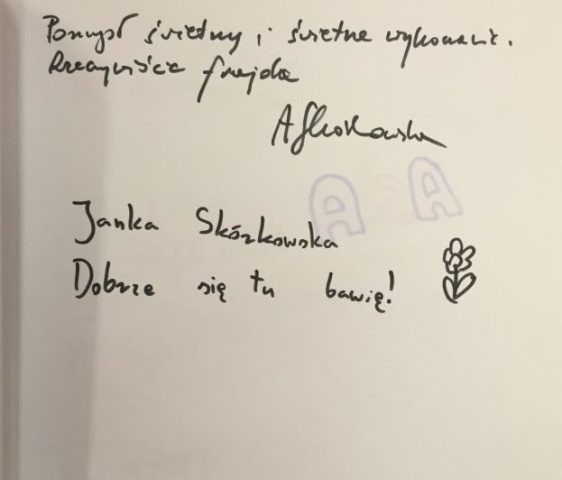 Pomysł świetny i świetne wykonanie.
Rzeczywiście frajda
Janka Skórkowska
Dobrze się tu bawię!